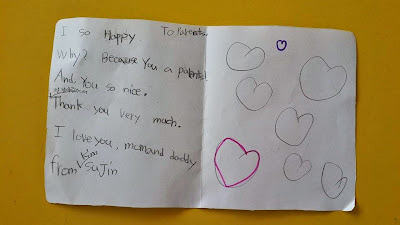 I so Happy To Parents.
Why? Because you a parents!
And, You so nice.
Thank you very much.
I love you, momand daddy
from Kim SuJin